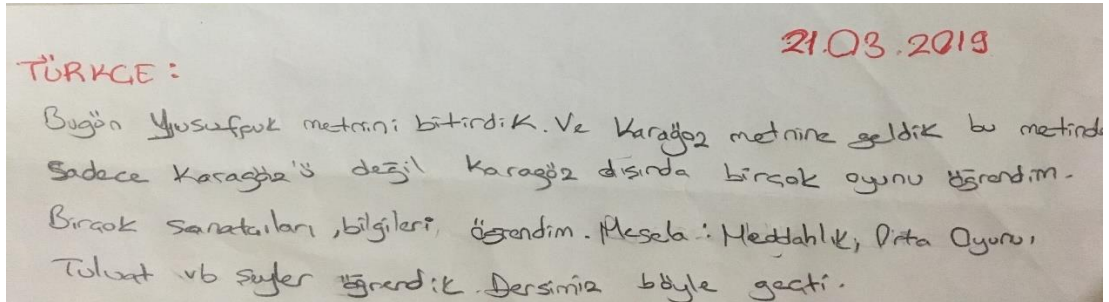 21.03.2019
TÜRKÇE:
Bugün Yusufçuk metnini bitirdik. Ve Karagöz metnine geldik bu metinde
Sadece Karagöz'ü değil Karagöz dışında birçok oyunu öğrendim.
Birçok sanatçıları, bilgileri, öğrendim. Mesela: Meddahlık, Orta Oyunu,
Tuluat vb şeyler öğrendik. Dersimiz böyle geçti.